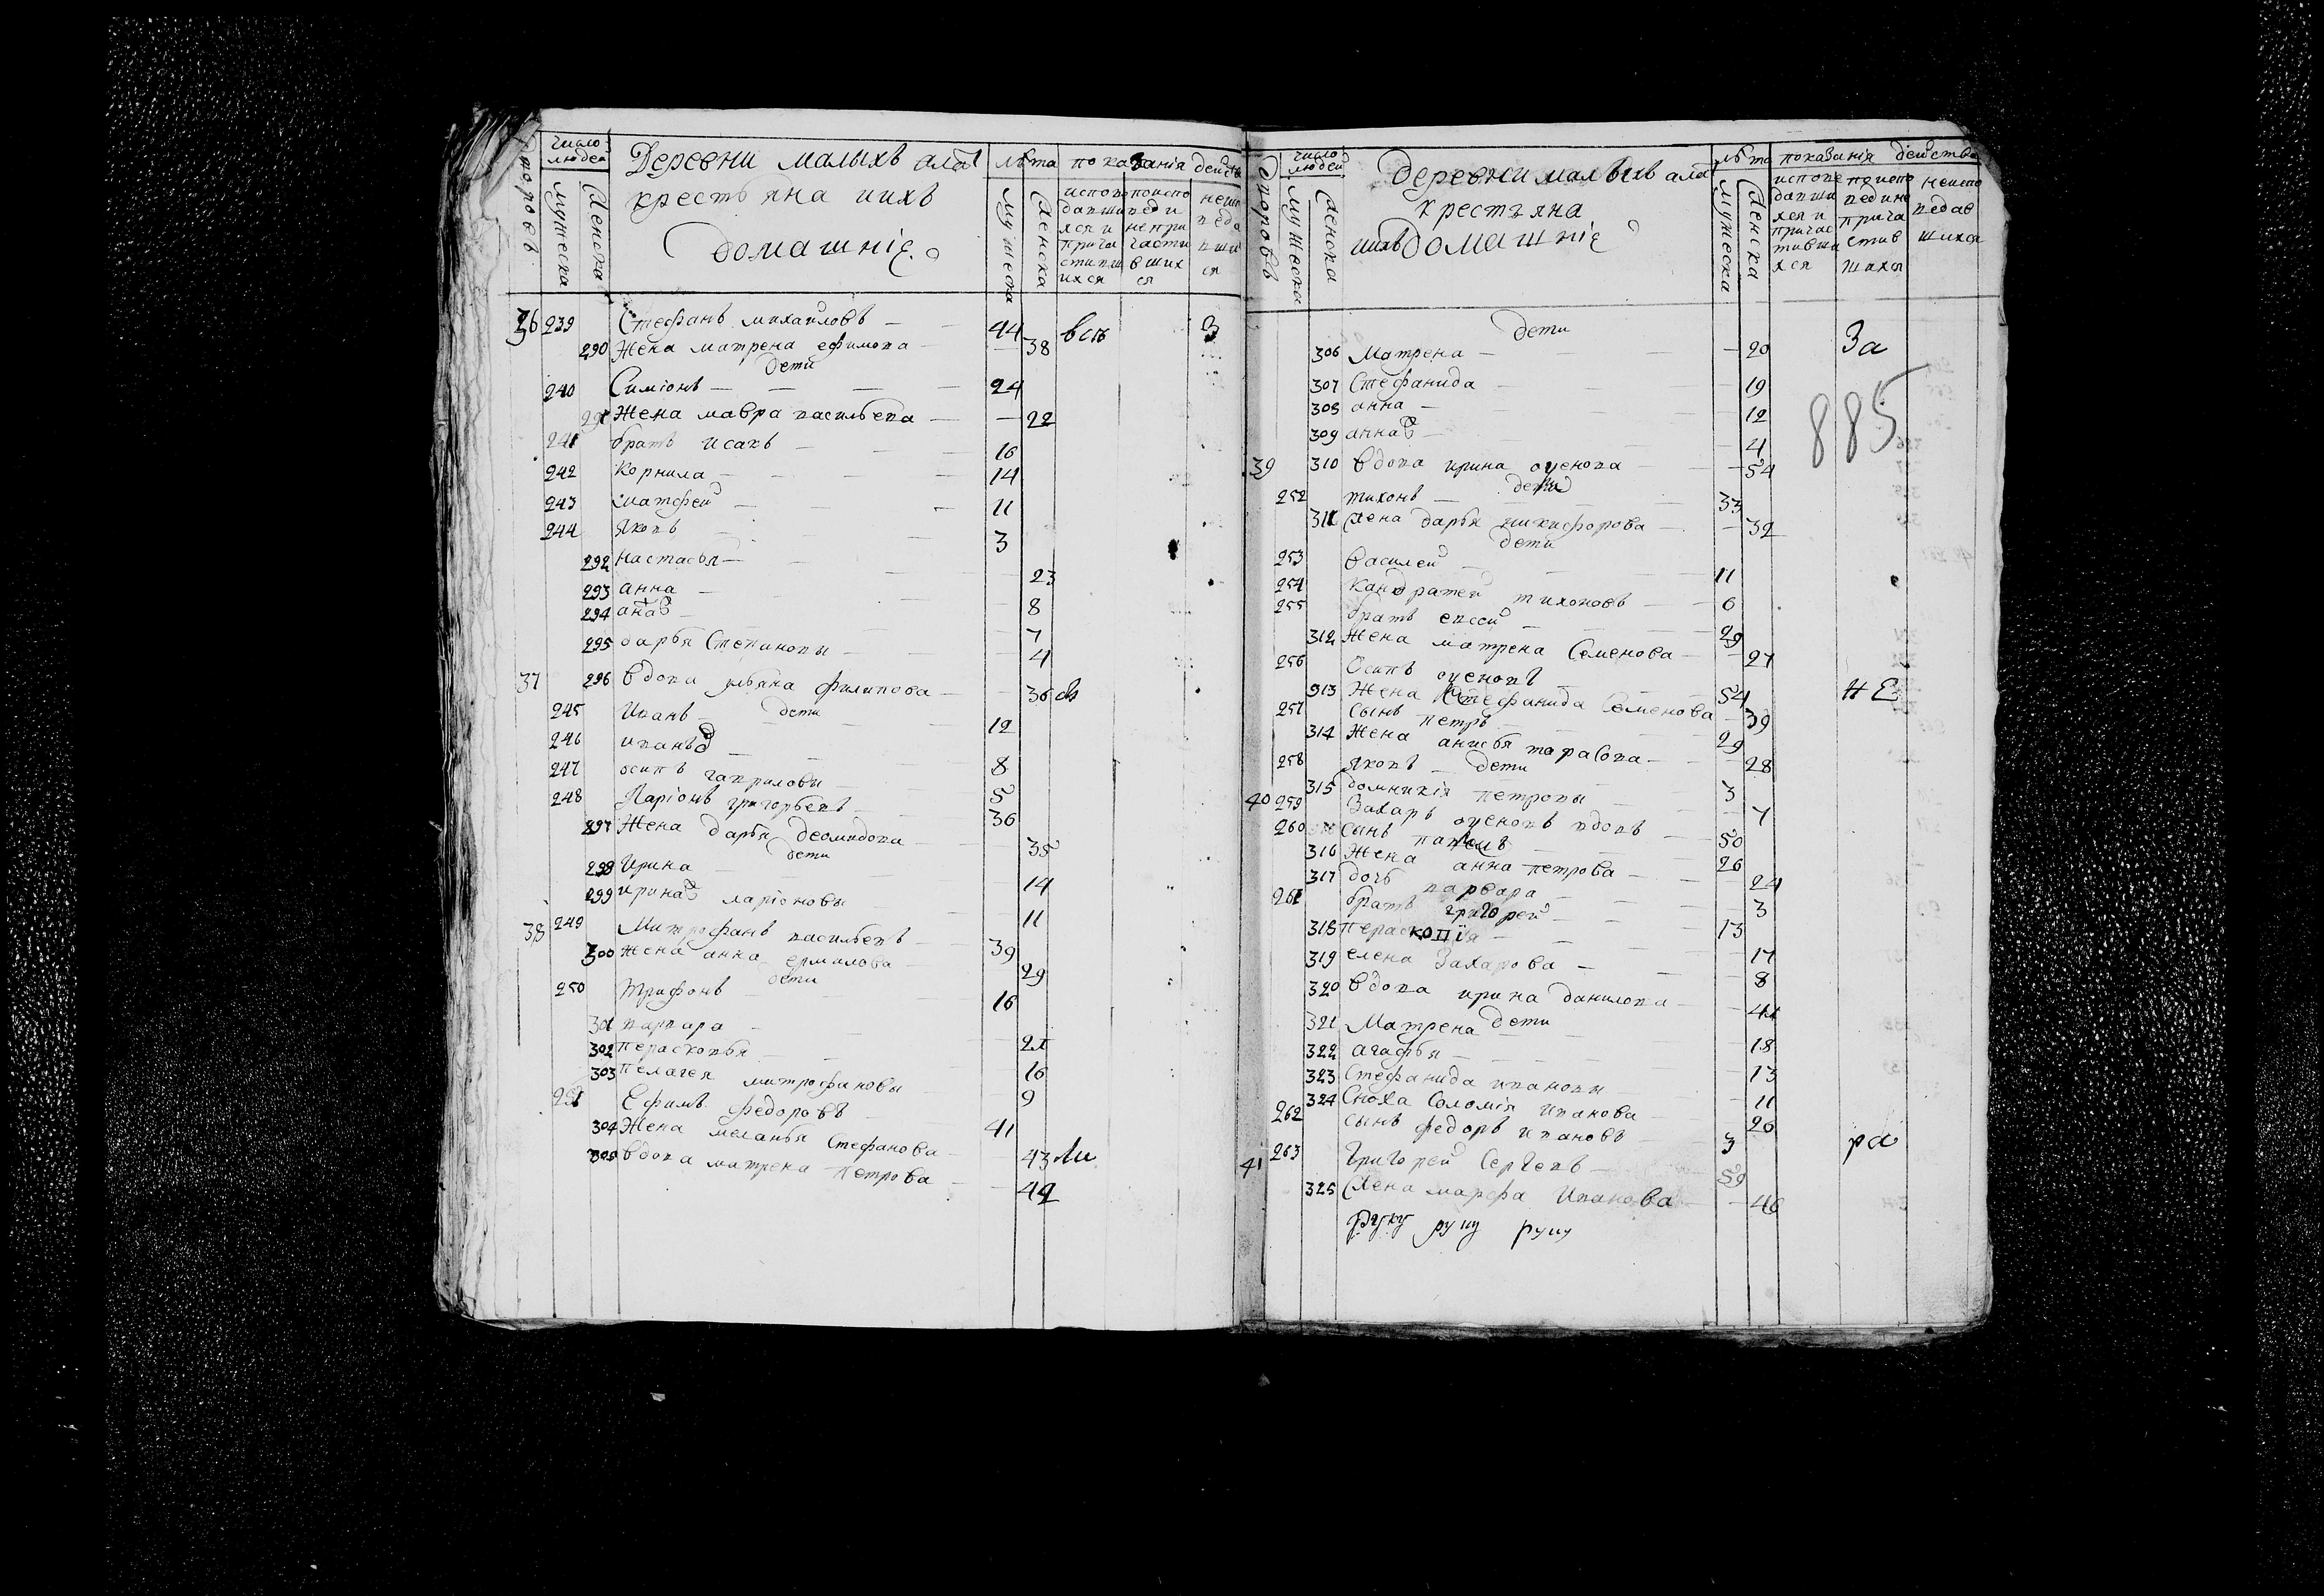 дворовъ
число людей
мужеска
женска
Деревни малыхъ алаб
крестьяна иихъ
домашніе
лѣта
мужеска
женска
показанія действ
36 239 Стефанъ михайловъ — 44 всѣ 3
290 Жена матрена ефимова — 38
дети
240 Симіонъ — 24
291 Жена мавра васильева — 22
241 братъ исакъ — 16
242 Корнила — 14
243 матфей — 11
244 яковъ 3
292 настасья — 23
293 анна — 8
294 анна — 7
295 дарья Степановы — 4
37 296 вдова ульяна филипова — 36
дети
245 Иванъ — 12
246 иванъ — 8
247 осипъ гавриловы 5
248 Ларіонъ григорьевъ — 36
297 Жена дарья деомидова 35
дети
298 Ирина — 14
299 ирина ларіоновы 11
38 249 Митрофанъ васильевъ — 39
300 Жена анна ермилова — 29
дети
250 Трифонъ — 16
301 варвара — 21
302 Пераскопья — 16
303 пелагея митрофановы 9
251 Ефимъ федоровъ 41
304 Жена меланья Стефанова — 43 ли
305 вдова матрена петрова — 42
дворовъ
число людей
мужеска
женска
деревни малыхъ алаб
крестьяна
иихъ домашніе
лѣта
мужеска
женска
показанія действа
дети
306 Матрена — 20 За
307 Стефанида — 19
308 анна — 12
885
309 анна — 4
39 310 вдова ирина — 54
дети
252 тихонъ — 33
311 Жена дарья никифорова — 32
дети
253 Василей 11
254 Кандратей тихоновъ — 6
255 братъ евсей 29
312 Жена матрена Семенова — 27
256 Осипъ 54
313 Жена Стефанида Семенова — 39 НЕ
257 сынъ петръ — 29
314 Жена анисья тарасова — 28
дети
258 яковъ — 3
315 домникія петровы 7
40 259 Захаръ вдовъ 50
260 сынъ 26
316 Жена анна петрова — 24
317 дочь варвара 3
261 братъ григорей — 13
318 Пераскопїя — 17
319 елена Захарова — 8
320 вдова ирина данилова — 44
дети
321 Матрена — 18
322 агафья — 13
323 Стефанида ивановы 11
324 Сноха Соломія Иванова 20
262 сынъ федоръ ивановъ 3 ра
41 263 Григорей Сергеевъ — 59
325 Жена марфа Иванова — 46